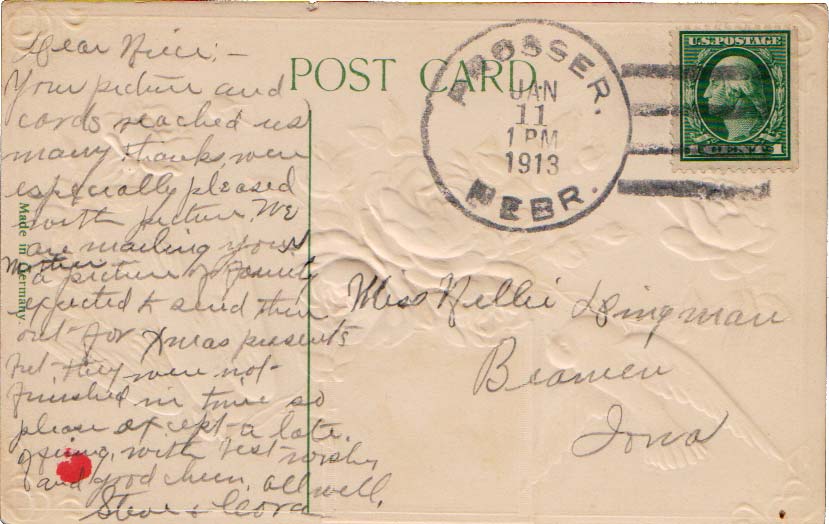 POST CARD.
PROSSER.
JAN
11
1 PM
1913
NEBR.
U.S. POSTAGE
1 CENTS 1
Made in Germany.
Dear Niece;-
Your picture and
cards reached us
many thanks, were
especially pleased
with picture. We
are mailing your
Mother a picture of family
expected to send them
out for Xmas presents
but they were not
finished in time so
please except a late
with best wishes
and good cheer. all well,
Steve & Cora
Miss Nellie Dingman
Beaman
Iowa